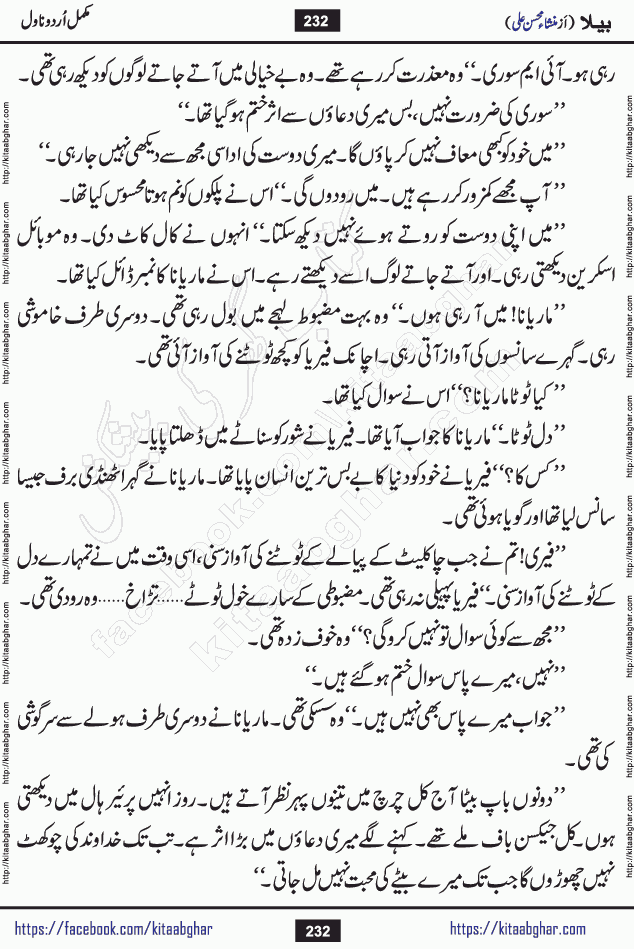 بیلا (از منشاء محسن علی) 232 مکمل اُردو ناول
رہی ہو۔ آئی ایم سوری۔‘‘ وہ معذرت کر رہے تھے۔ وہ بے خیالی میں آتے جاتے لوگوں کو دیکھ رہی تھی۔
’’سوری کی ضرورت نہیں، بس میری دعاؤں سے اثر ختم ہو گیا تھا۔‘‘
’’میں خود کو کبھی معاف نہیں کر پاؤں گا۔ میری دوست کی اداسی مجھ سے دیکھی نہیں جا رہی۔‘‘
’’آپ مجھے کمزور کر رہے ہیں۔ میں رو دوں گی۔‘‘ اس نے پلکوں کو نم ہوتا محسوس کیا تھا۔
’’میں اپنی دوست کو روتے ہوئے نہیں دیکھ سکتا۔‘‘ انہوں نے کال کاٹ دی۔ وہ موبائل
اسکرین دیکھتی رہی۔ اور آتے جاتے لوگ اسے دیکھتے رہے۔ اس نے ماریانا کا نمبر ڈائل کیا تھا۔
’’ماریانا! میں آ رہی ہوں۔‘‘ وہ بہت مضبوط لہجے میں بول رہی تھی۔ دوسری طرف خاموشی
رہی۔ گہرے سانسوں کی آواز آتی رہی۔ اچانک فیریا کو کچھ ٹوٹنے کی آواز آئی تھی۔
’’کیا ٹوٹا ماریانا؟‘‘ اس نے سوال کیا تھا۔
’’دل ٹوٹا۔‘‘ ماریانا کا جواب آیا تھا۔ فیریا نے شور کو سناٹے میں ڈھلتا پایا۔
’’کس کا؟‘‘ فیریا نے خود کو دنیا کا بے بس ترین انسان پایا تھا۔ ماریانا نے گہرا ٹھنڈی برف جیسا
سانس لیا تھا اور گویا ہوئی تھی۔
’’فیری! تم نے جب چاکلیٹ کے پیالے کے ٹوٹنے کی آواز سنی، اسی وقت میں نے تمہارے دل
کے ٹوٹنے کی آواز سنی۔‘‘ فیریا پہیلی نہ رہی تھی۔ مضبوطی کے سارے خول ٹوٹے...... تڑاخ...... وہ رو دی تھی۔
’’مجھ سے کوئی سوال تو نہیں کرو گی؟‘‘ وہ خوف زدہ تھی۔
’’نہیں، میرے پاس سوال ختم ہو گئے ہیں۔‘‘
’’جواب میرے پاس بھی نہیں ہیں۔‘‘ وہ سسکی تھی۔ ماریانا نے دوسری طرف ہولے سے سرگوشی
کی تھی۔
’’دونوں باپ بیٹا آج کل چرچ میں تینوں پہر نظر آتے ہیں۔ روز انہیں پرئیر ہال میں دیکھتی
ہوں۔ کل جیکسن باف ملے تھے۔ کہنے لگے میری دعاؤں میں بڑا اثر ہے۔ تب تک خداوند کی چوکھٹ
نہیں چھوڑوں گا جب تک میرے بیٹے کی محبت نہیں مل جاتی۔‘‘
https://facebook.com/kitaabghar 232 https://kitaabghar.com
http://kitaabghar.com
کتاب گھر کی پیشکش
facebook.com/kitaabghar
kitaabghar.com